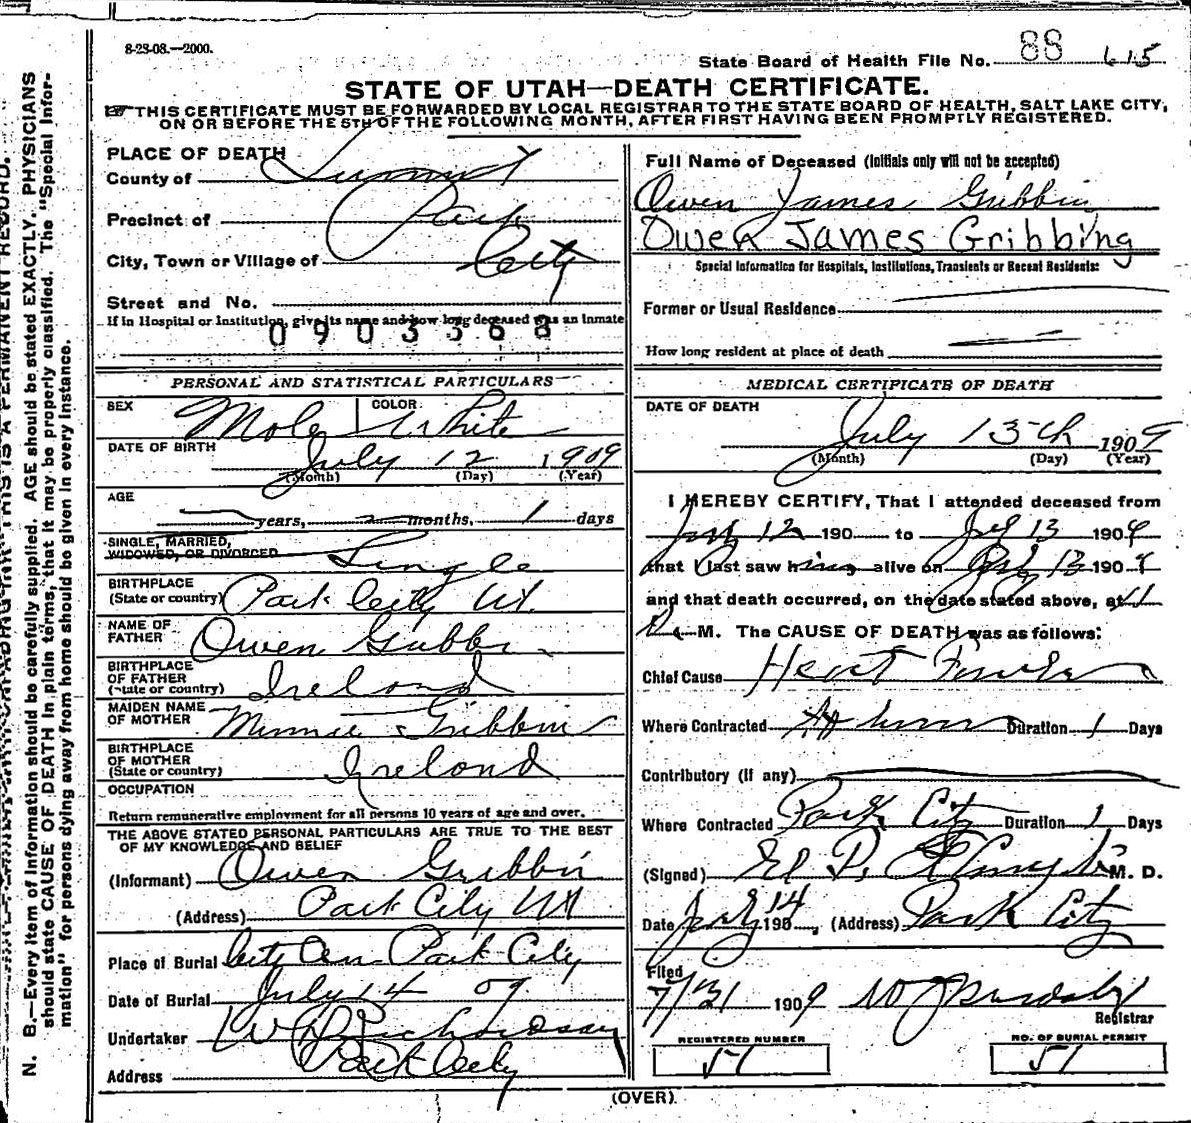 8-23-08.—2000.
State Board of Health File No. 88 615
STATE OF UTAH—DEATH CERTIFICATE.
THIS CERTIFICATE MUST BE FORWARDED BY LOCAL REGISTRAR TO THE STATE BOARD OF HEALTH, SALT LAKE CITY,
ON OR BEFORE THE 5TH OF THE FOLLOWING MONTH, AFTER FIRST HAVING BEEN PROMPTLY REGISTERED.
PLACE OF DEATH
County of Summit
Precinct of Park
City, Town or Village of City
Street and No.
If in Hospital or Institution, give its name and how long deceased was an Inmate
0903368
PERSONAL AND STATISTICAL PARTICULARS
SEX Male COLOR White
DATE OF BIRTH July 12 1909
(Month) (Day) (Year)
AGE
years, months, 1 days
SINGLE, MARRIED,
WIDOWED, OR DIVORCED Single
BIRTHPLACE
(State or country) Park City Ut.
NAME OF
FATHER Owen Gribbin
BIRTHPLACE
OF FATHER
(State or country) Ireland
MAIDEN NAME
OF MOTHER Minnie Gribbin
BIRTHPLACE
OF MOTHER
(State or country) Ireland
OCCUPATION
Return remunerative employment for all persons 10 years of age and over.
THE ABOVE STATED PERSONAL PARTICULARS ARE TRUE TO THE BEST
OF MY KNOWLEDGE AND BELIEF
(Informant) Owen Gribbin
(Address) Park City Ut
Place of Burial City Cem Park City
Date of Burial July 14 09
Undertaker W Richardson
Address Park City
Full Name of Deceased (Initials only will not be accepted)
Owen James Gribbin
Owen James Gribbing
Special Information for Hospitals, Institutions, Transients or Recent Residents:
Former or Usual Residence
How long resident at place of death
MEDICAL CERTIFICATE OF DEATH
DATE OF DEATH
July 13th 1909
(Month) (Day) (Year)
I HEREBY CERTIFY, That I attended deceased from
July 12 190 to July 13 1909
that I last saw him alive on July 13 1909
and that death occurred, on the date stated above, at 1
M. The CAUSE OF DEATH was as follows:
Chief Cause Heart Failure
Where Contracted At home Duration 1 Days
Contributory (if any)
Where Contracted Park City Duration 1 Days
(Signed) M. D.
Date July 14 190 , (Address) Park City
Filed
7/31 1909
Registrar
REGISTERED NUMBER
51
NO. OF BURIAL PERMIT
51
(OVER)
N. B.—Every item of information should be carefully supplied. AGE should be stated EXACTLY. PHYSICIANS
should state CAUSE OF DEATH in plain terms, that it may be properly classified. The "Special Infor-
mation" for persons dying away from home should be given in every instance.